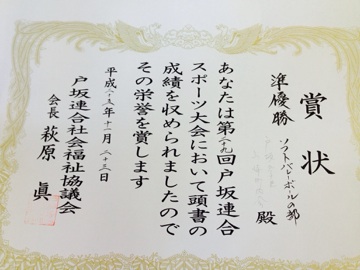 賞状
準優勝
ソフトバレーボールの部
殿
あなたは第二十九回戸坂連合
スポーツ大会において頭書の
成績を収められましたので
その栄誉を賞します
平成二十五年十一月二十三日
戸坂連合社会福祉協議会
会長 萩原 眞